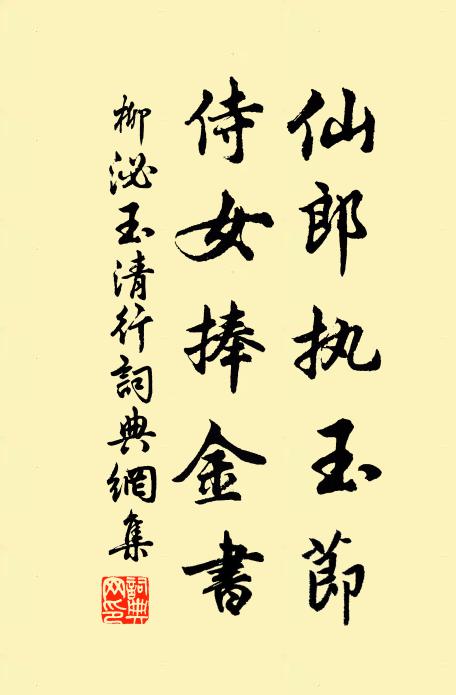 仙郎执玉節
侍女捧金書
柳泌玉清行詞典網集
詞典网印